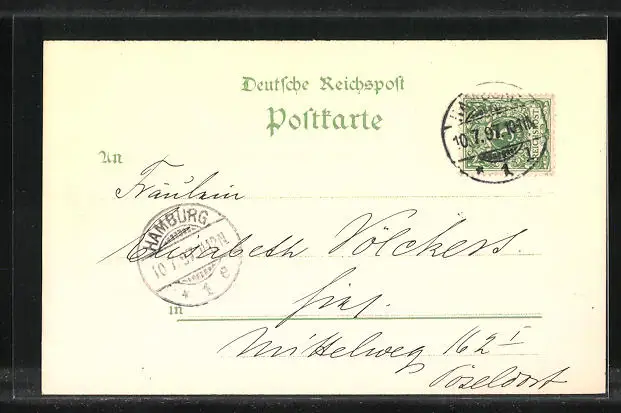 Deutsche Reichspost
Postkarte
REICHSPOST
10.7.97.
* 1
An
Fräulein
HAMBURG
10.7.97.
* 1 e
Elisabeth Völckers.
in
hier.
Mittelweg 162 I
Pöseldorf